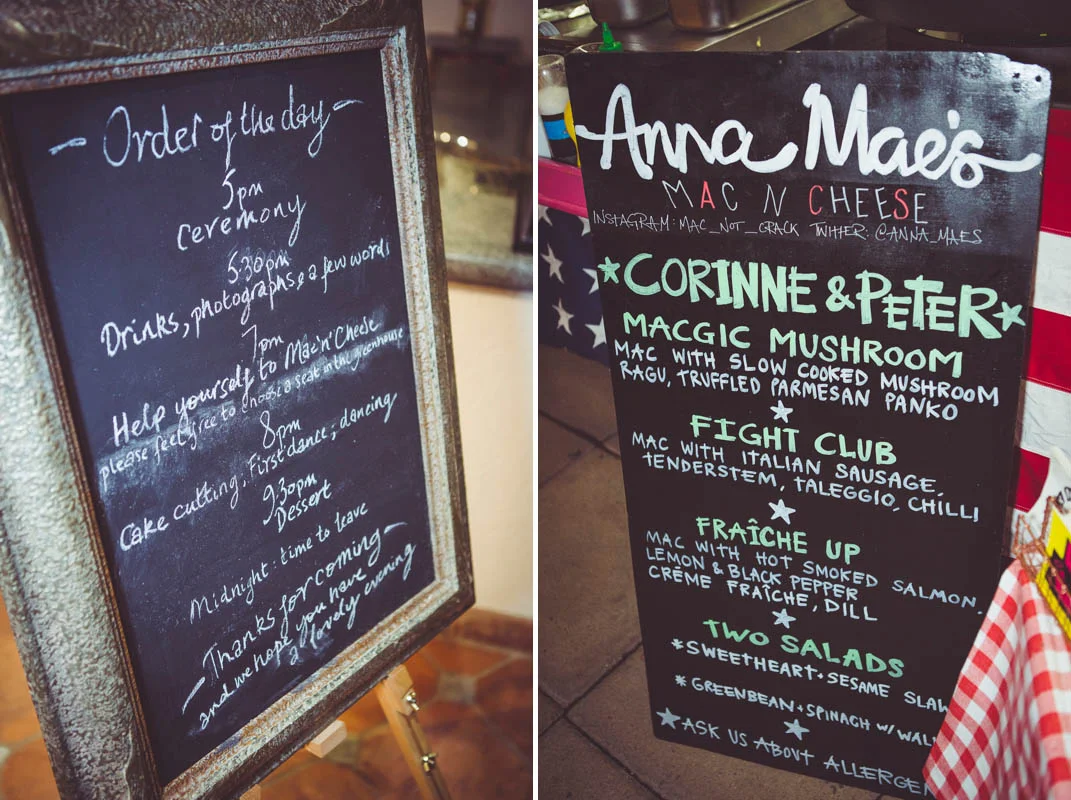 - Order of the day -
5pm
ceremony
5.30pm
Drinks, photographs & a few words
7pm
Help yourself to Mac'n'Cheese
please feel free to choose a seat in the greenhouse
8pm
Cake cutting, First dance, dancing
9.30pm
Dessert
Midnight: time to leave
- Thanks for coming -
and we hope you have
a lovely evening
Anna Mae's
MAC N CHEESE
INSTAGRAM: MAC_NOT_CRACK TWITTER: @ANNA_MAES
CORINNE & PETER
MACGIC MUSHROOM
MAC WITH SLOW COOKED MUSHROOM
RAGU, TRUFFLED PARMESAN PANKO
FIGHT CLUB
MAC WITH ITALIAN SAUSAGE,
TENDERSTEM, TALEGGIO, CHILLI
FRAÎCHE UP
MAC WITH HOT SMOKED SALMON,
LEMON & BLACK PEPPER
CRÈME FRAÎCHE, DILL
TWO SALADS
*SWEETHEART + SESAME SLAW
*GREENBEAN + SPINACH W/
ASK US ABOUT